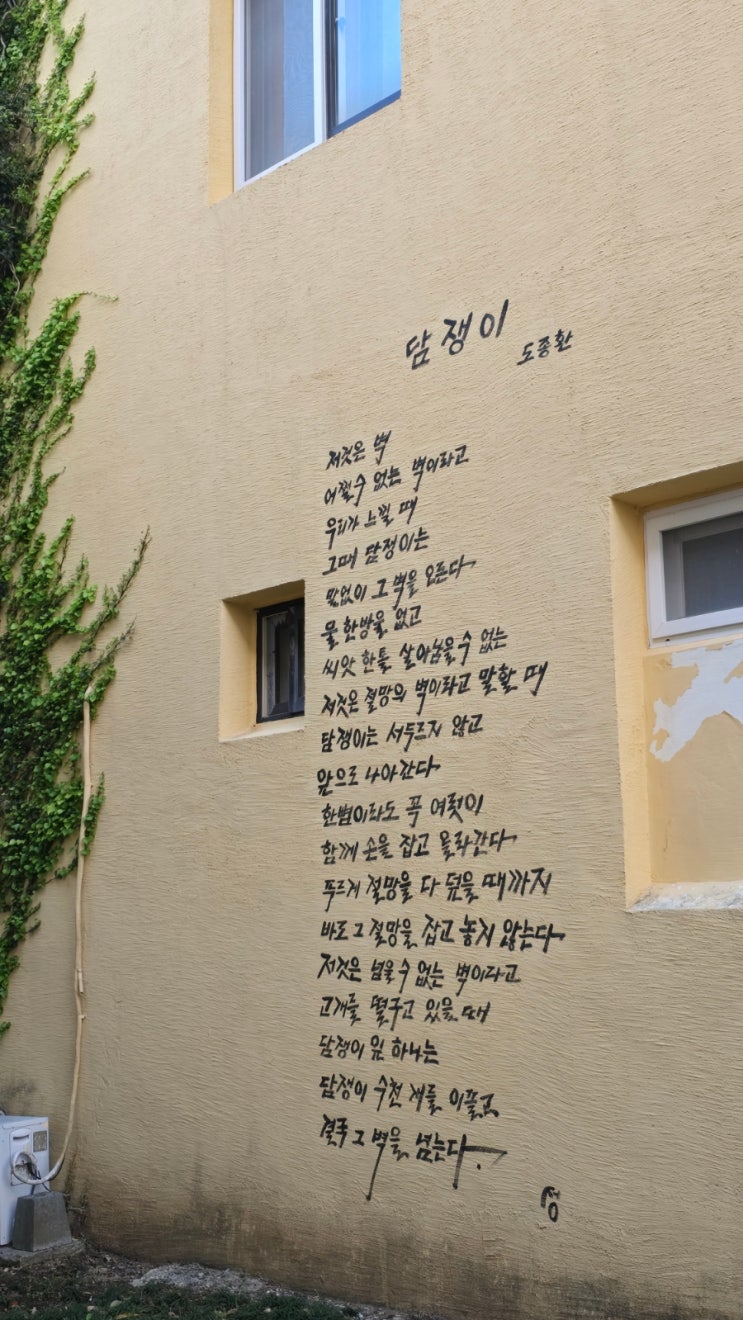 담쟁이
도종환
저것은 벽
어쩔수 없는 벽이라고
우리가 느낄 때
그때 담쟁이는
말없이 그 벽을 오른다
물 한방울 없고
씨앗 한톨 살아남을수 없는
저것은 절망의 벽이라고 말할 때
담쟁이는 서두르지 않고
앞으로 나아간다
한뼘이라도 꼭 여럿이
함께 손을 잡고 올라간다
푸르게 절망을 다 덮을 때까지
바로 그 절망을 잡고 놓지 않는다
저것은 넘을수 없는 벽이라고
고개를 떨구고 있을 때
담쟁이 잎 하나는
담쟁이 수천 개를 이끌고
결국 그 벽을 넘는다.